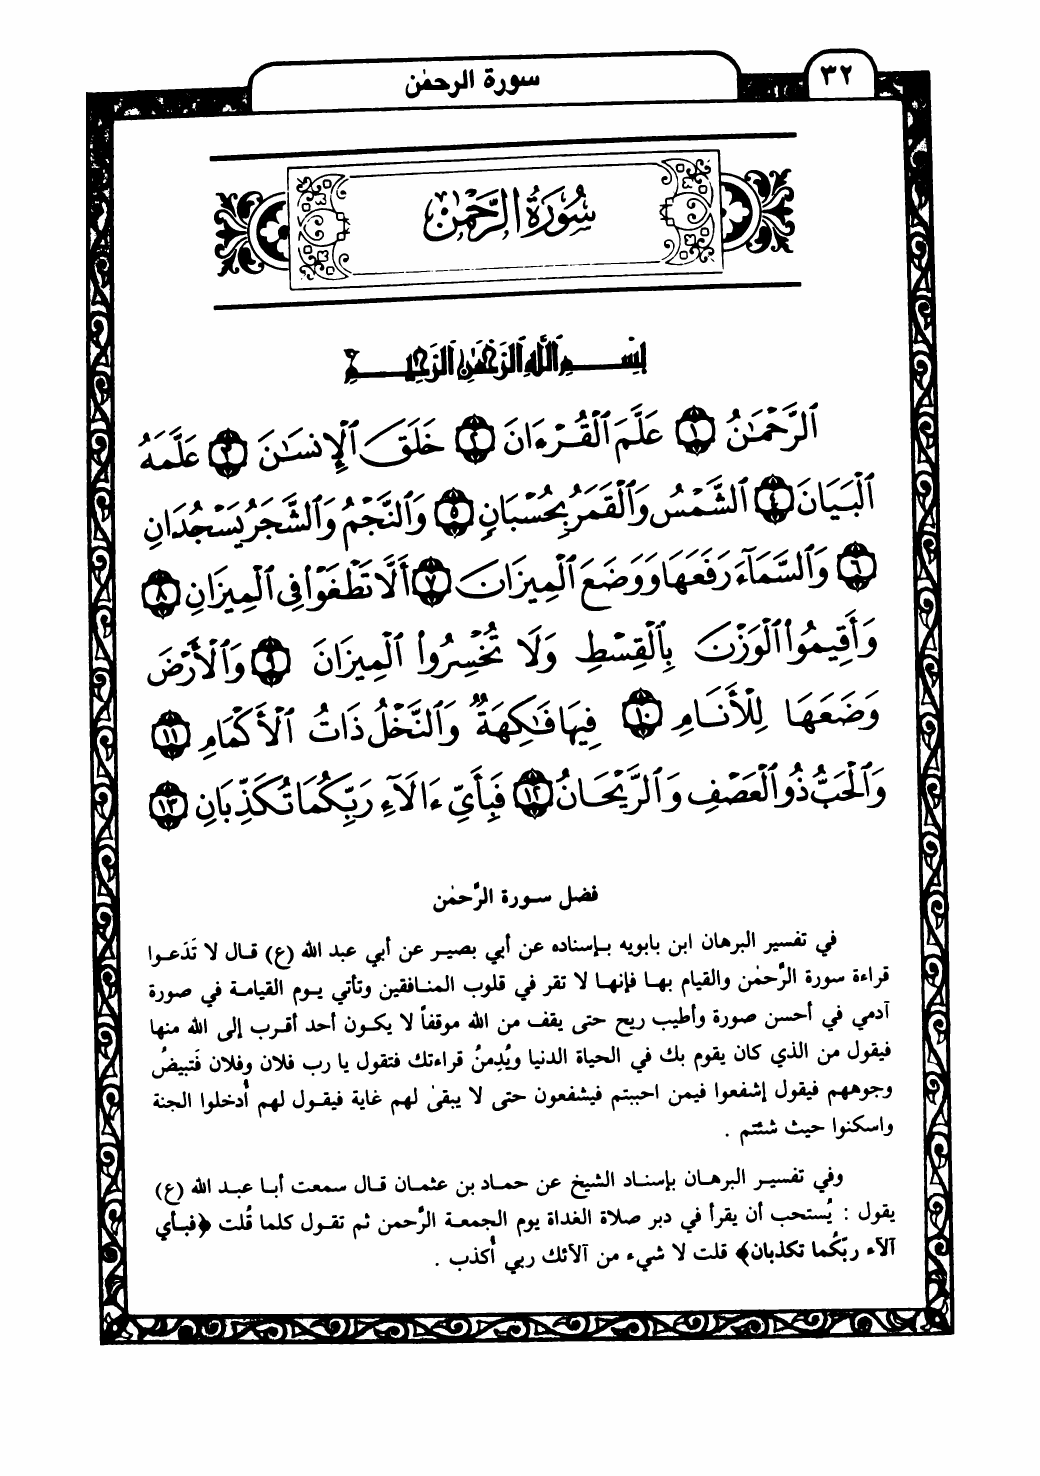 ٣٢
سورة الرحمٰن
سُورَةُ الرَّحْمٰن
بِسْمِ اللَّهِ الرَّحْمَٰنِ الرَّحِيمِ
ٱلرَّحْمَـٰنُ ١ عَلَّمَ ٱلْقُرْءَانَ ٢ خَلَقَ ٱلْإِنسَـٰنَ ٣ عَلَّمَهُ
ٱلْبَيَانَ ٤ ٱلشَّمْسُ وَٱلْقَمَرُ بِحُسْبَانٍ ٥ وَٱلنَّجْمُ وَٱلشَّجَرُ يَسْجُدَانِ
٦ وَٱلسَّمَآءَ رَفَعَهَا وَوَضَعَ ٱلْمِيزَانَ ٧ أَلَّا تَطْغَوْا۟ فِى ٱلْمِيزَانِ ٨
وَأَقِيمُوا۟ ٱلْوَزْنَ بِٱلْقِسْطِ وَلَا تُخْسِرُوا۟ ٱلْمِيزَانَ ٩ وَٱلْأَرْضَ
وَضَعَهَا لِلْأَنَامِ ١٠ فِيهَا فَـٰكِهَةٌ وَٱلنَّخْلُ ذَاتُ ٱلْأَكْمَامِ ١١
وَٱلْحَبُّ ذُو ٱلْعَصْفِ وَٱلرَّيْحَانُ ١٢ فَبِأَىِّ ءَالَآءِ رَبِّكُمَا تُكَذِّبَانِ ١٣
فضل سورة الرَّحمٰن
في تفسير البرهان ابن بابويه بإسناده عن أبي بصير عن أبي عبد الله (ع) قال لا تَدَعوا
قراءة سورة الرَّحمٰن والقيام بها فإنها لا تقر في قلوب المنافقين وتأتي يوم القيامة في صورة
آدمي في أحسن صورة وأطيب ريح حتى يقف من الله موقفاً لا يكون أحد أقرب إلى الله منها
فيقول من الذي كان يقوم بك في الحياة الدنيا ويُدمنُ قراءتك فتقول يا رب فلان وفلان فَتبيضُ
وجوههم فيقول إشفعوا فيمن احببتم فيشفعون حتى لا يبقىٰ لهم غاية فيقول لهم أُدخلوا الجنة
واسكنوا حيث شئتم .
وفي تفسير البرهان بإسناد الشيخ عن حماد بن عثمان قال سمعت أبا عبد الله (ع)
يقول : يُستحب أن يقرأ في دبر صلاة الغداة يوم الجمعة الرَّحمن ثم تقول كلما قُلت ﴿فبأي
آلآء ربّكُما تكذبان﴾ قلت لا شيء من آلآئك ربي أُكذب .